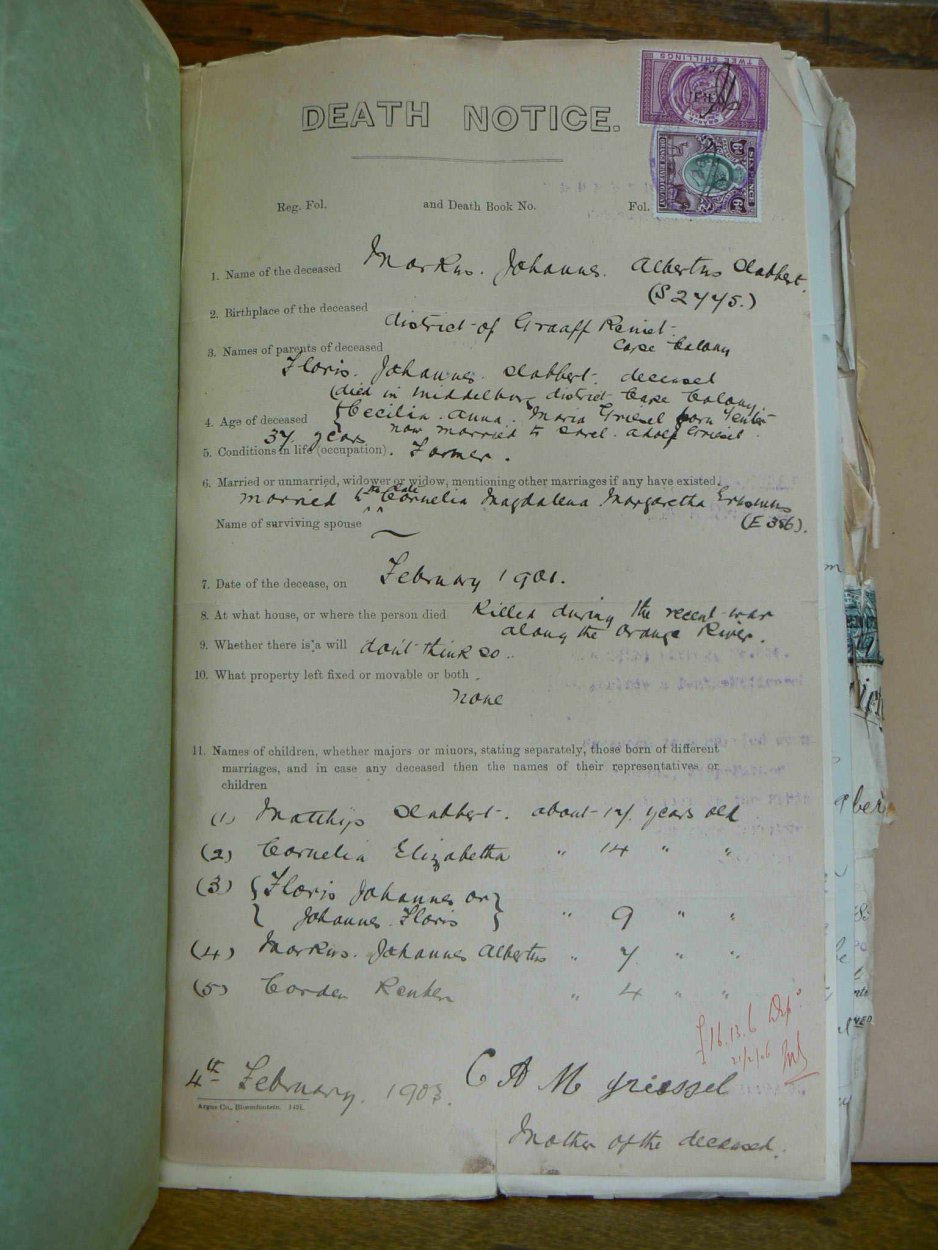 TWEE SHILLINGS
DEATH NOTICE.
SIX PENCE
6d 6d
ORANGE RIVER COLONY
Reg. Fol. and Death Book No. Fol.
1. Name of the deceased Markus. Johannes. Albertus Slabbert.
(S 2445.)
2. Birthplace of the deceased district of Graaff Reniet
Cape Colony
3. Names of parents of deceased
Floris. Johannes. Slabbert. deceased
(died in Middelburg district Cape Colony.
4. Age of deceased { Cecilia. Anna. Maria Griesel born Venter
37 years now married to Carel. Adolf Griesel.
5. Conditions in life (occupation). Farmer.
6. Married or unmarried, widower or widow, mentioning other marriages if any have existed.
married to the late Cornelia Magdalena Margaretha Erasmus
(E 386).
Name of surviving spouse ~
7. Date of the decease, on February 1901.
8. At what house, or where the person died Killed during the recent war
along the Orange River.
9. Whether there is a will don't think so..
10. What property left fixed or movable or both.
none
11. Names of children, whether majors or minors, stating separately, those born of different
marriages, and in case any deceased then the names of their representatives or
children
(1) Matthijs Slabbert. about 17 years old
(2) Cornelia Elizabetha " 14 " "
(3) { Floris Johannes or }
{ Johannes. Floris } " 9 " "
(4) Markus. Johannes Albertus " 7 " "
(5) Corden " 4 " "
£16.13.6 Dep:
21/2/06
4th February. 1903. C A M Griessel
Argus Co., Bloemfontein.
Mother of the deceased.